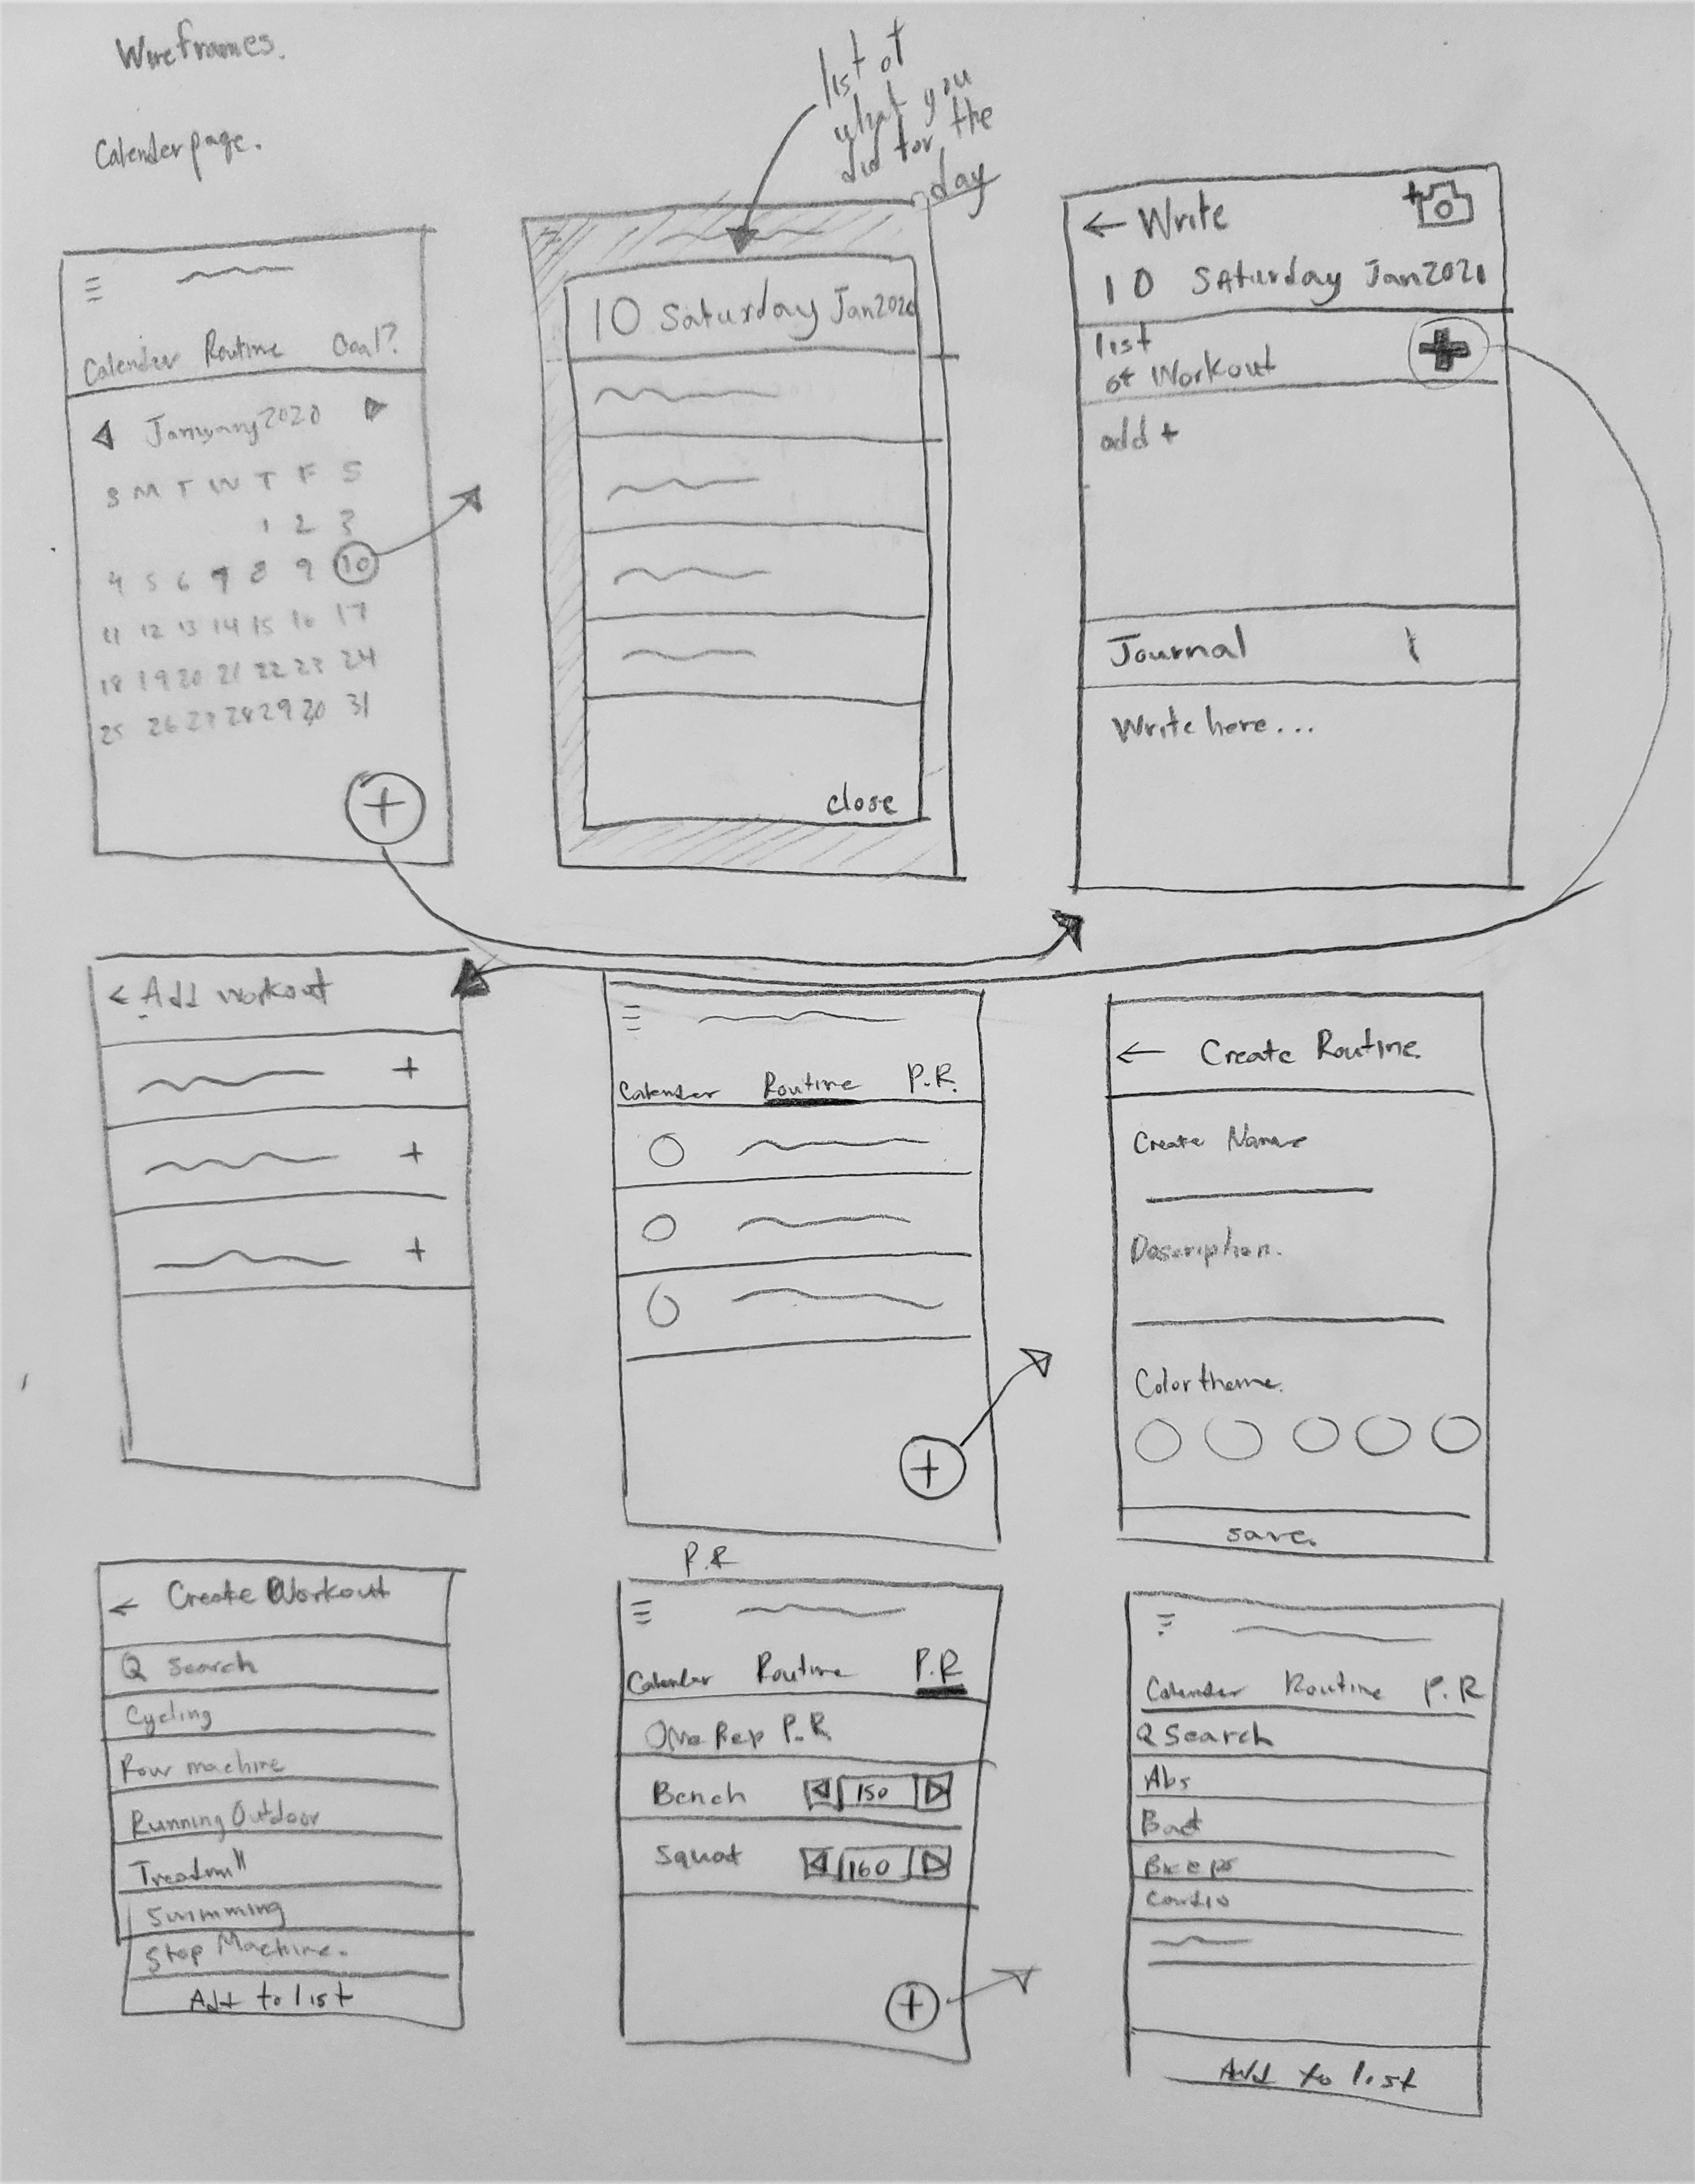 Wireframes.
Calender page.
list of
what you
did for the
day
Calender Routine Goal?
January 2020
S M T W T F S
1 2 3
4 5 6 7 8 9 10
11 12 13 14 15 16 17
18 19 20 21 22 23 24
25 26 27 28 29 30 31
+
10 Saturday Jan 2020
close
← Write
10 Saturday Jan 2021
list
of Workout
add +
Journal
Write here...
< Add workout
+
+
+
Calender Routine P.R.
+
← Create Routine.
Create Name
Description.
Color theme.
save.
← Create Workout
Q Search
Cycling
Row machine
Running Outdoor
Treadmill
Swimming
Step Machine.
Add to list
P.R
Calender Routine P.R
One Rep P.R
Bench 150
Squat 160
+
Calender Routine P.R
Q Search
Abs
Back
Biceps
Cardio
Add to list